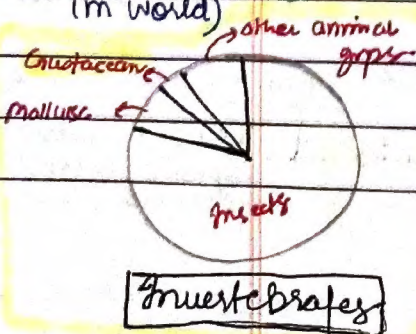 (in world)
other animal
grps
Crustaceans
Mollusc
Insects
Invertebrates